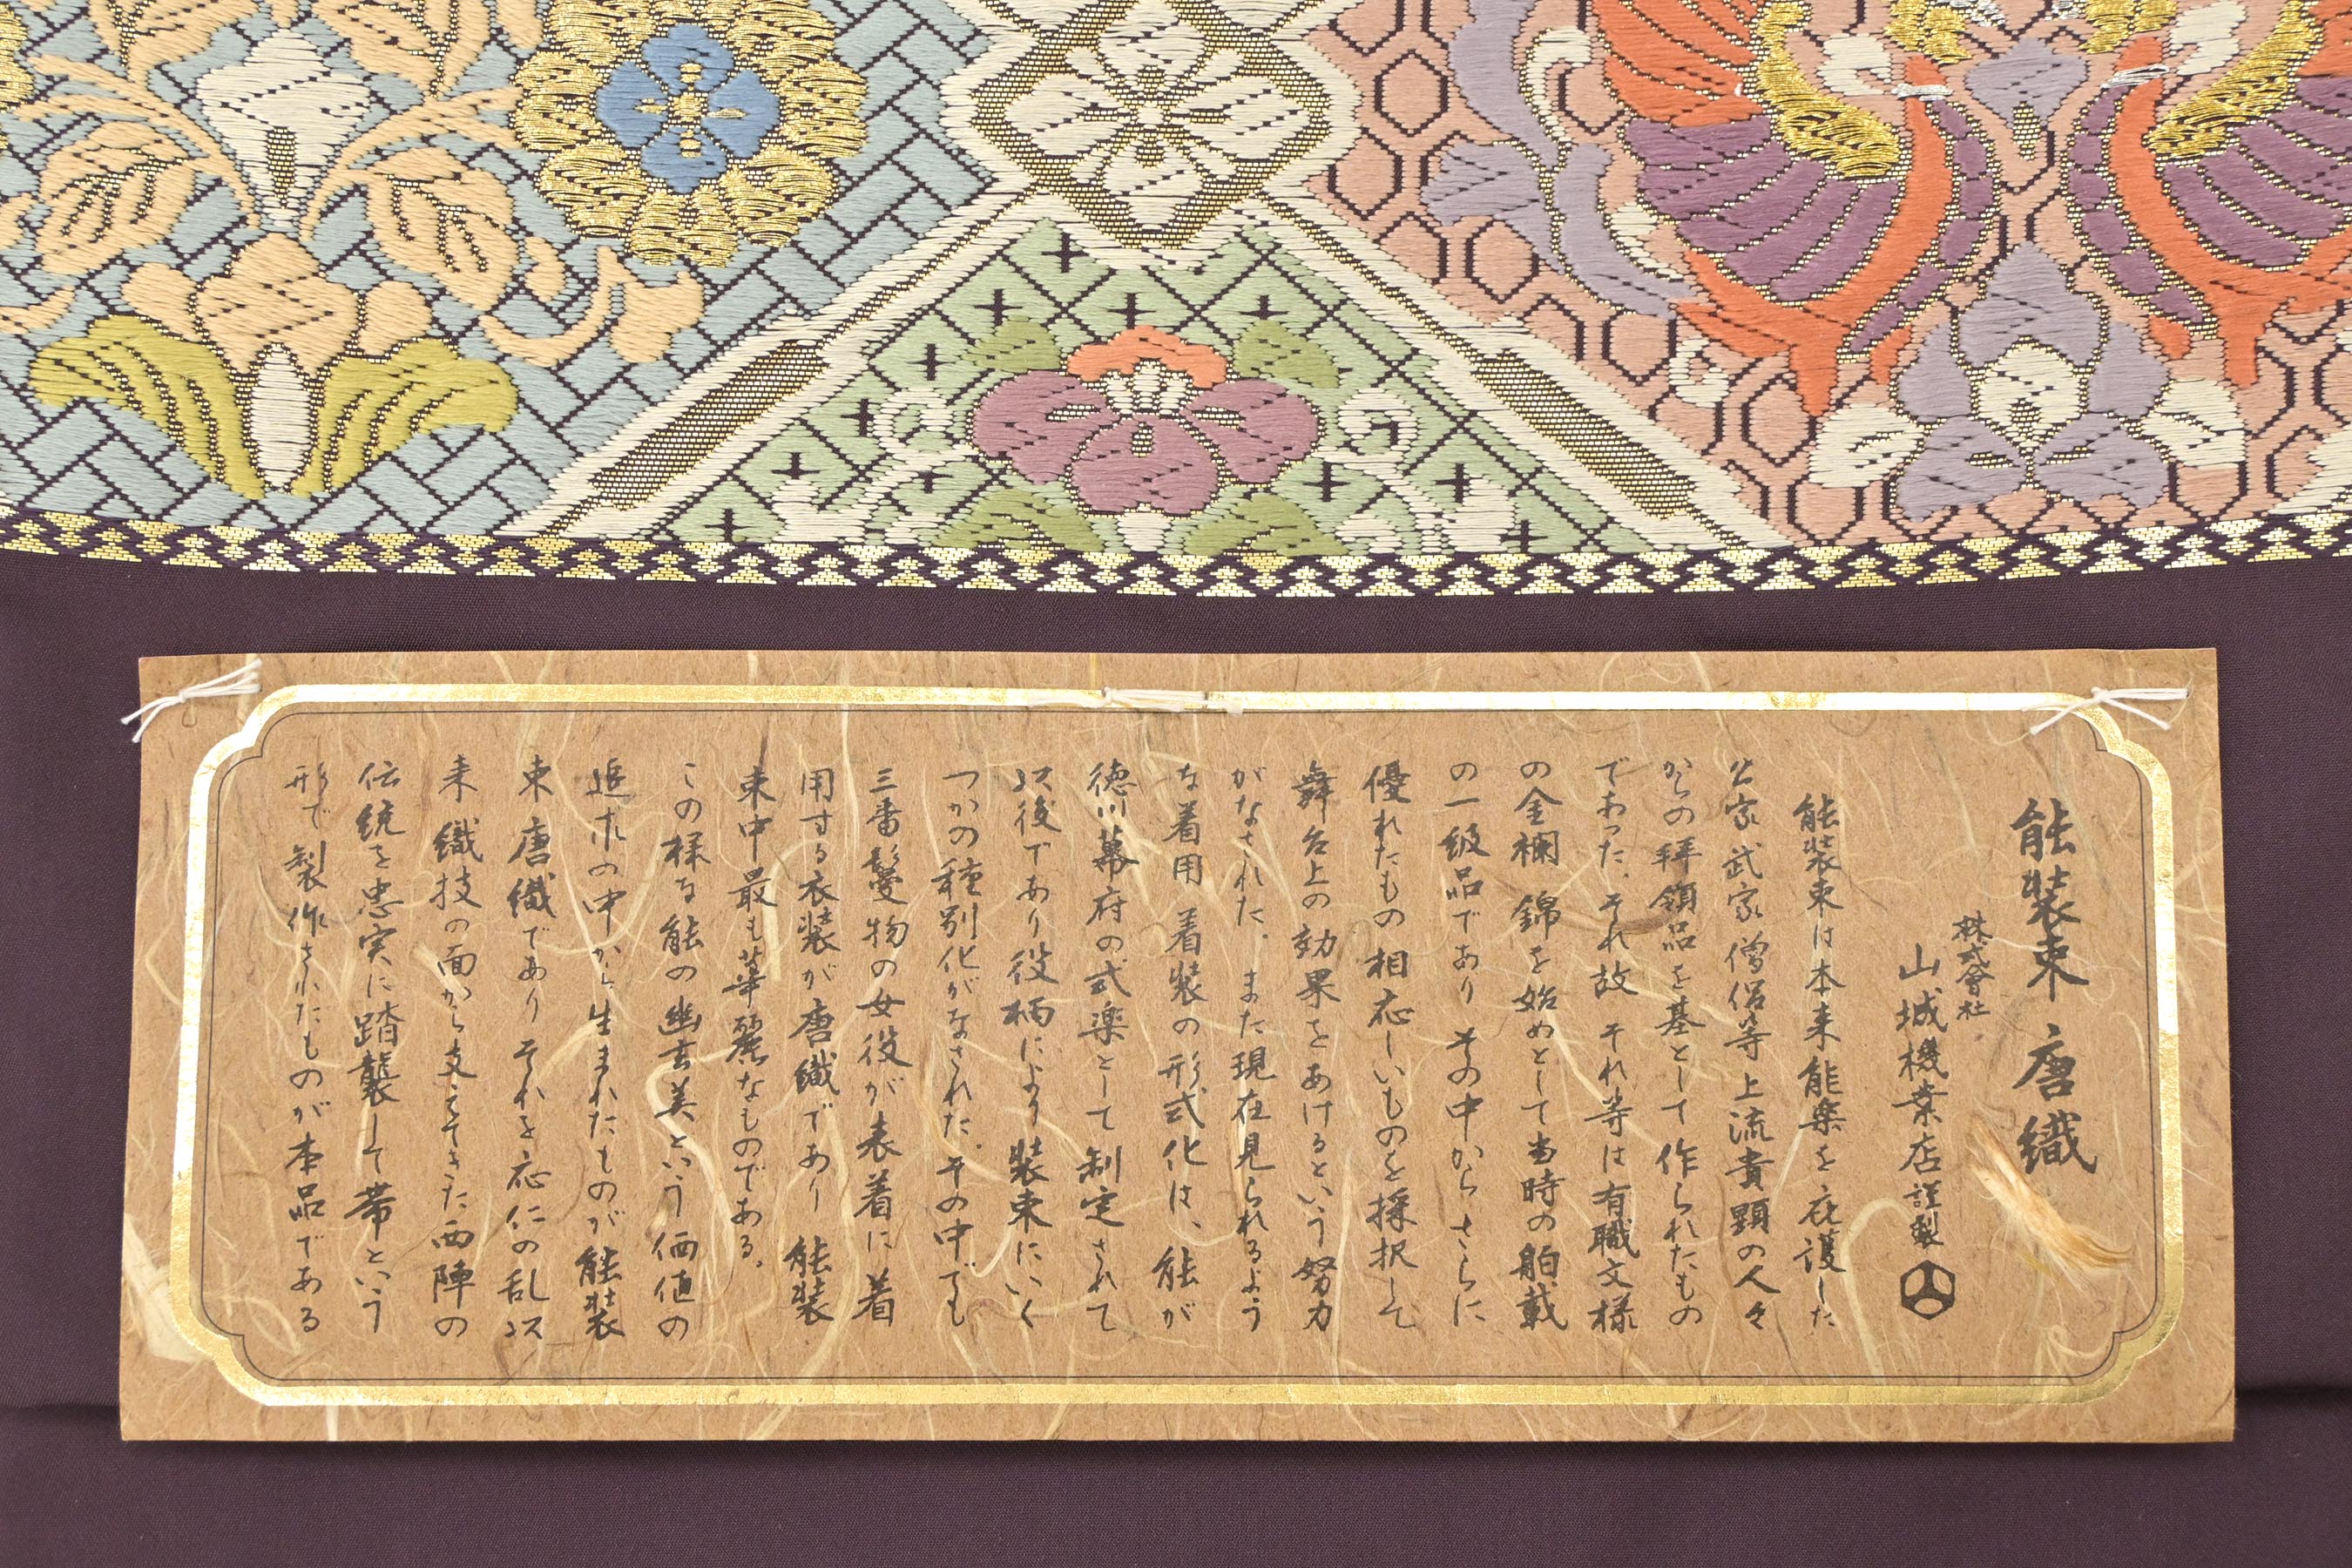 能装束 唐織
株式會社
山城機業店 謹製
能装束は本来能楽を庇護した
公家 武家 僧侶等 上流貴顕の人々
からの拝領品を基として作られたもの
であった。それ故 それ等は有職文様
の金襴 錦を始めとして当時の舶載
の一級品であり その中から さらに
優れたもの 相応しいものを採択して
舞台上の効果をあげるという努力
がなされた。また現在見られるよう
な着用 着装の形式化は、能が
徳川幕府の式楽として制定されて
以後であり役柄により装束にいく
つかの種別化がなされた。その中でも
三番鬘物の女役が表着に着
用する衣装が唐織であり 能装
束中最も華麗なものである。
この様な能の幽玄美という価値の
追求の中から生まれたものが能装
束 唐織であり それを応仁の乱以
来 織技の面から支えてきた西陣の
伝統を忠実に踏襲して帯という
形で製作されたものが本品である